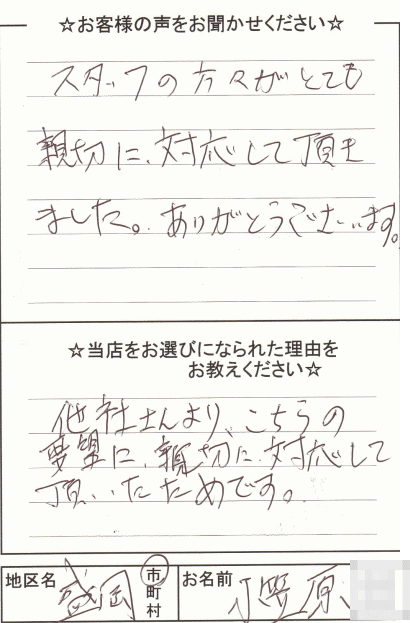 ☆お客様の声をお聞かせください☆
スタッフの方々がとても
親切に、対応して頂き
ました。ありがとうございます。
☆当店をお選びになられた理由を
お教えください☆
他社さんより、こちらの
要望に、親切に、対応して
頂いたためです。
地区名 盛岡 市町村 お名前 小笠原